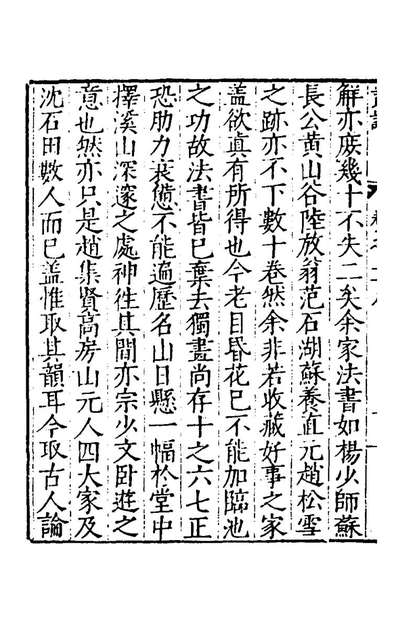 解亦庶幾十不失二矣余家法書如楊少師蘇
長公黃山谷陸放翁范石湖蘇養直元趙松雪
之跡亦不下數十卷然余非若收藏好事之家
盖欲真有所得也今老目昏花已不能加臨池
之功故法書皆已棄去獨畫尚存十之六七正
恐肋力衰憊不能遍歷名山日懸一幅於堂中
擇溪山深邃之處神徃其間亦宗少文卧遊之
意也然亦只是趙集賢高房山元人四大家及
沈石田數人而已盖惟取其韻耳今取古人論